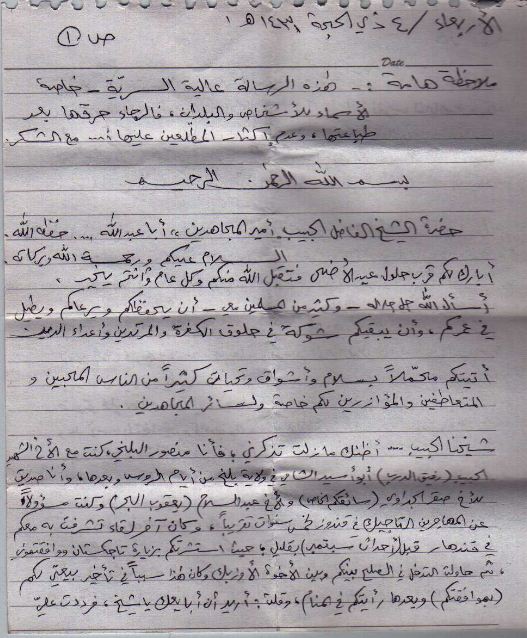 الأربعاء / ٤ ذي الحجة ١٤٣٠ هـ
ص ١
Date
ملاحظة هامة :- هذه الرسالة عالية السريّة - خاصة
الأسماء للأشخاص والبلدان، فالرجاء حرقها بعد
طباعتها، وعدم إكثار المطلعين عليها ... مع الشكر.
بسم الله الرحمن الرحيم
حضرة الشيخ الفاضل الحبيب أمير المجاهدين، أبا عبدالله ... حفظه الله.
السلام عليكم ورحمة الله وبركاته
أبارك لكم قرب حلول عيد الأضحى فتقبل الله منكم وكل عام وأنتم بخير.
أسأل الله جل جلاله - وكثير من المسلمين معي - أن يحفظكم ويرعاكم ويطيل
في عمركم، وأن يبقيكم شوكة في حلوق الكفرة والمرتدين وأعداء الدين
أتيتكم محمّلاً بسلام وأشواق وتحيات كثيراً من الناس المحبين و
المتعاطفين والمؤازرين لكم خاصة ولسائر المجاهدين.
شيخنا الحبيب ... أظنك مازلت تذكرني، فأنا منصور البلخي، كنت مع الأخ الشهيد
الحبيب أبو أسيد الشامي في ولاية بلخ من أيام الروس وبعدها، وأنا صديق
للأخ صقر الجداوي (سائقكم الخاص) والأخ عبدالسلام (يعقوب البحر) وكنت مسؤولاً
عن المهاجرين الطاجيك في قندوز سنوات تقريباً، وكان آخر لقاء تشرفت به معكم
في قندهار قبل (أحداث سبتمبر) بقليل، حيث استشرتكم بزيارة تاجكستان ووافقتموني
، ثم حاولت التدخل في الصلح بينكم وبين الأخوة الأوزبك وكان هذا سبباً في تأخير بيعتي لكم
(بموافقتكم) وبعدها رأيتكم في المنام، وقلت: أريد أن أبايعك يا شيخ، فرددت عليّ